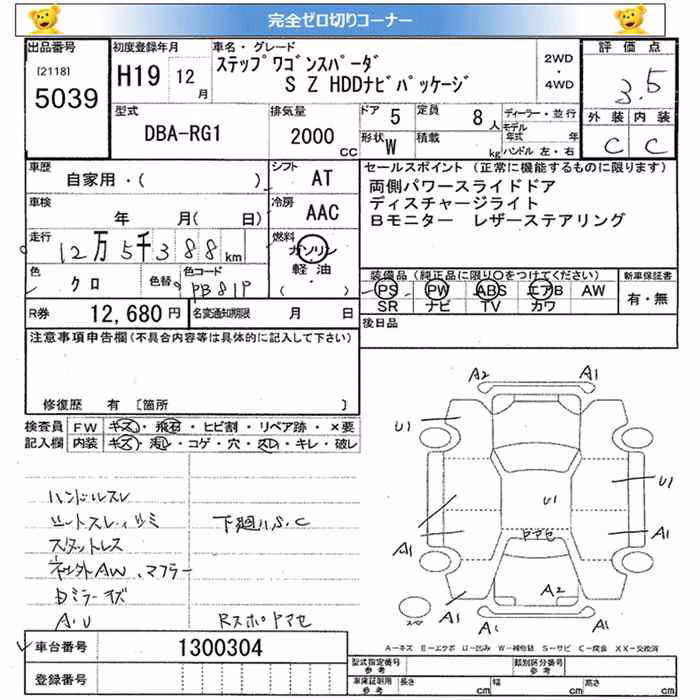 完全ゼロ切りコーナー
出品番号 初度登録年月 車名・グレード 評価点
[2118] 5039
H19 12月
ステップワゴンスパーダ
S Z HDDナビパッケージ
2WD・4WD
3.5
外装 内装
C C
型式 DBA-RG1
排気量 2000 CC
ドア 5 定員 8人
形状 W 積載 kg
ディーラー・並行
モデル年式 年
ハンドル 左・右
車歴 自家用・( )
シフト AT
セールスポイント (正常に機能するものに限ります)
両側パワースライドドア
ディスチャージライト
Bモニター レザーステアリング
車検 年 月( 日)
冷房 AAC
走行 12万5千388km
燃料 ガソリン・軽油・( )
色 クロ 色替 色コード PB81P
装備品(純正品に限り○をつけてください) 新車保証書
PS PW ABS エアB AW
SR ナビ TV カワ
有・無
R券 12,680円 名変通知期限 月 日
後日品
注意事項申告欄(不具合内容等は具体的に記入して下さい)
修復歴 有 [箇所 ]
検査員記入欄
FW キズ・飛石・ヒビ割・リペア跡・×要
内装 キズ・汚レ・コゲ・穴・スレ・キレ・破レ
ハンドルスレ
シートスレ
下廻りS.C
スタットレス
社外AW、マフラー
ドミラーキズ
A.U
Rスポイヤマセ
A2 A1
U1
U1
U1
ヤマセ
A1 A1
A2
A1 A1
A1 A1
A−キズ E−エクボ U−凹み W−補修跡 S−サビ C−腐食 XX−交換済
車台番号 1300304
登録番号
型式指定番号 参考 類別区分番号 参考
車庫証明用 参考 長さ cm 幅 cm 高さ cm